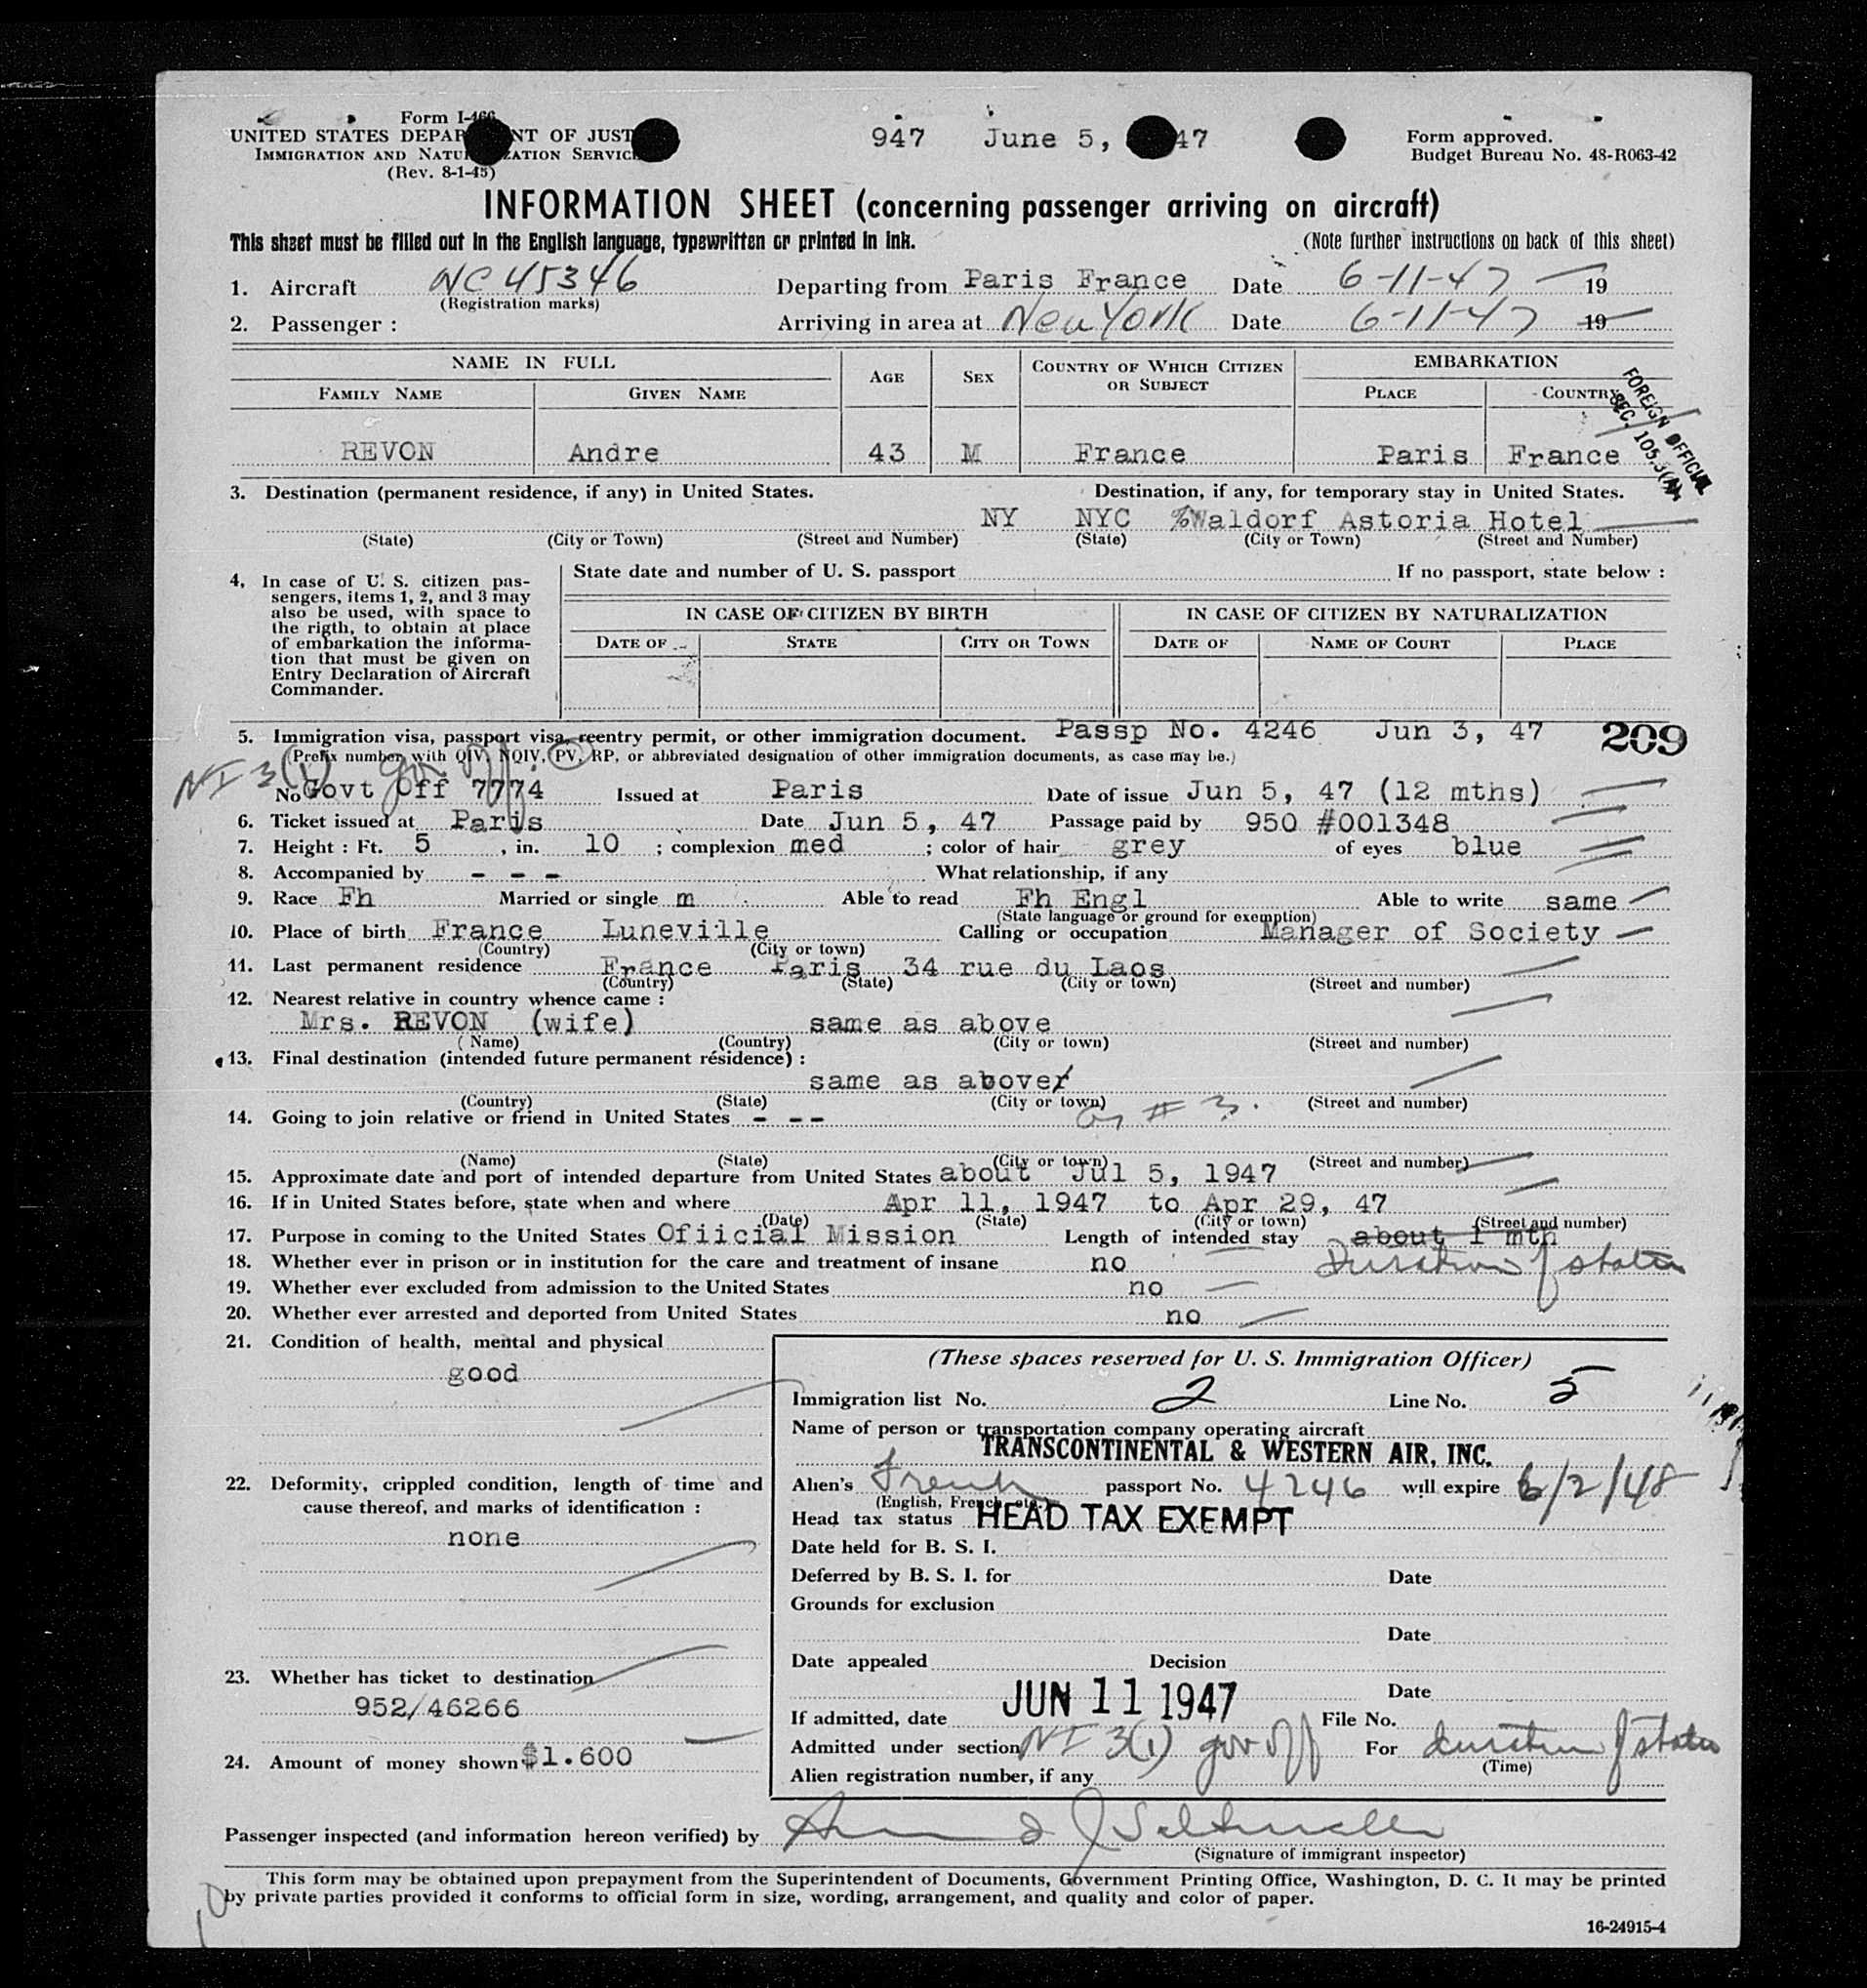 Form I-466
UNITED STATES DEPAR NT OF JUST
IMMIGRATION AND NATU ZATION SERVIC
(Rev. 8-1-45)
947 June 5, 47
Form approved.
Budget Bureau No. 48-R063-42
INFORMATION SHEET (concerning passenger arriving on aircraft)
This sheet must be filled out in the English language, typewritten or printed in ink. (Note further instructions on back of this sheet)
1. Aircraft NC 45346 Departing from Paris France Date 6-11-47 19
(Registration marks)
2. Passenger : Arriving in area at New York Date 6-11-47 19
NAME IN FULL AGE SEX COUNTRY OF WHICH CITIZEN OR SUBJECT EMBARKATION
FAMILY NAME GIVEN NAME PLACE COUNTRY
FOREIGN OFFICIAL
SEC. 105.3(A)
REVON Andre 43 M France Paris France
3. Destination (permanent residence, if any) in United States. Destination, if any, for temporary stay in United States.
NY NYC %Waldorf Astoria Hotel
(State) (City or Town) (Street and Number) (State) (City or Town) (Street and Number)
4. In case of U. S. citizen pas-
sengers, items 1, 2, and 3 may
also be used, with space to
the rigth, to obtain at place
of embarkation the informa-
tion that must be given on
Entry Declaration of Aircraft
Commander.
State date and number of U. S. passport If no passport, state below :
IN CASE OF CITIZEN BY BIRTH IN CASE OF CITIZEN BY NATURALIZATION
DATE OF STATE CITY OR TOWN DATE OF NAME OF COURT PLACE
5. Immigration visa, passport visa, reentry permit, or other immigration document. Passp No. 4246 Jun 3, 47 209
(Prefix number with QIV, NQIV, PV, RP, or abbreviated designation of other immigration documents, as case may be.)
NI 3(1) gov off
No Govt Off 7774 Issued at Paris Date of issue Jun 5, 47 (12 mths)
6. Ticket issued at Paris Date Jun 5, 47 Passage paid by 950 #001348
7. Height : Ft. 5 , in. 10 ; complexion med ; color of hair grey of eyes blue
8. Accompanied by - - - What relationship, if any
9. Race Fh Married or single m Able to read Fh Engl Able to write same
(State language or ground for exemption)
10. Place of birth France Luneville Calling or occupation Manager of Society
(Country) (City or town)
11. Last permanent residence France Paris 34 rue du Laos
(Country) (State) (City or town) (Street and number)
12. Nearest relative in country whence came :
Mrs. REVON (wife) same as above
(Name) (Country) (City or town) (Street and number)
13. Final destination (intended future permanent résidence) :
same as above
(Country) (State) (City or town) (Street and number)
14. Going to join relative or friend in United States - - - # 3.
(Name) (State) (City or town) (Street and number)
15. Approximate date and port of intended departure from United States about Jul 5, 1947
16. If in United States before, state when and where Apr 11, 1947 to Apr 29, 47
(Date) (State) (City or town) (Street and number)
17. Purpose in coming to the United States Ofiicial Mission Length of intended stay about 1 mth
18. Whether ever in prison or in institution for the care and treatment of insane no Duration of status
19. Whether ever excluded from admission to the United States no
20. Whether ever arrested and deported from United States no
21. Condition of health, mental and physical
good
22. Deformity, crippled condition, length of time and
cause thereof, and marks of identification :
none
23. Whether has ticket to destination
952/46266
24. Amount of money shown $1.600
(These spaces reserved for U. S. Immigration Officer)
Immigration list No. 2 Line No. 5
Name of person or transportation company operating aircraft
TRANSCONTINENTAL & WESTERN AIR, INC.
Alien's French passport No. 4246 will expire 6/2/48
(English, French, etc.)
Head tax status HEAD TAX EXEMPT
Date held for B. S. I.
Deferred by B. S. I. for Date
Grounds for exclusion
Date
Date appealed Decision
Date
If admitted, date JUN 11 1947 File No.
Admitted under section NI 3(1) gov off For duration of status
(Time)
Alien registration number, if any
Passenger inspected (and information hereon verified) by
(Signature of immigrant inspector)
This form may be obtained upon prepayment from the Superintendent of Documents, Government Printing Office, Washington, D. C. It may be printed
by private parties provided it conforms to official form in size, wording, arrangement, and quality and color of paper.
16-24915-4